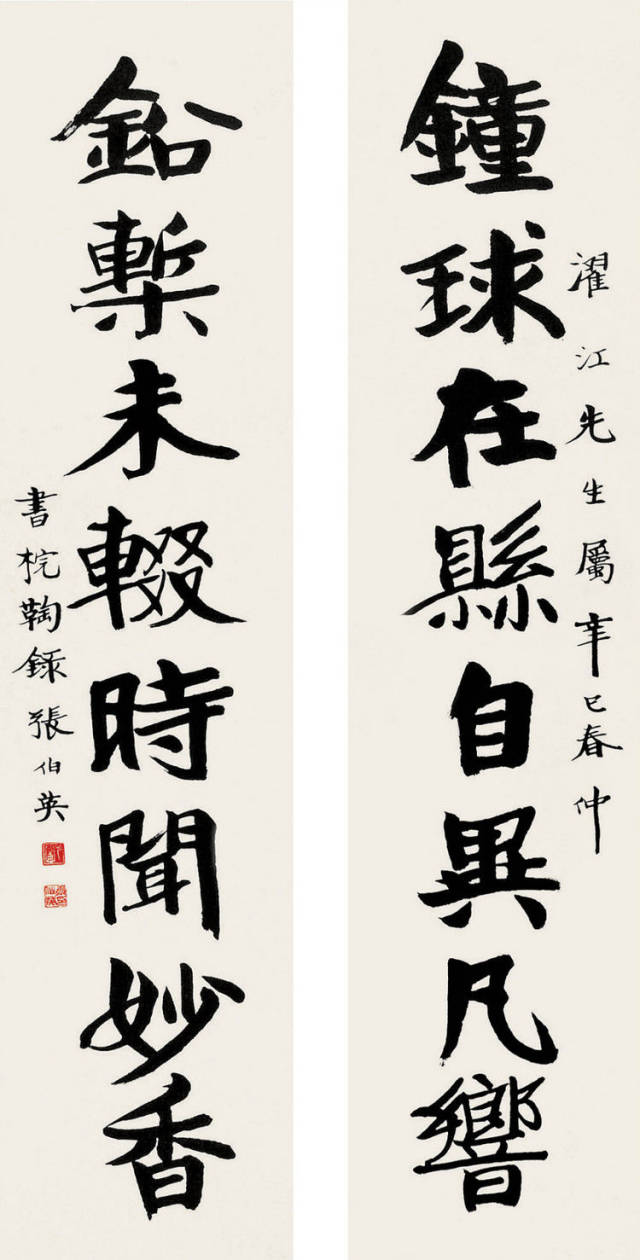 濯江先生屬辛巳春仲
鐘球在縣自異凡響
鉛槧未輟時聞妙香
書梡鞫錄張伯英